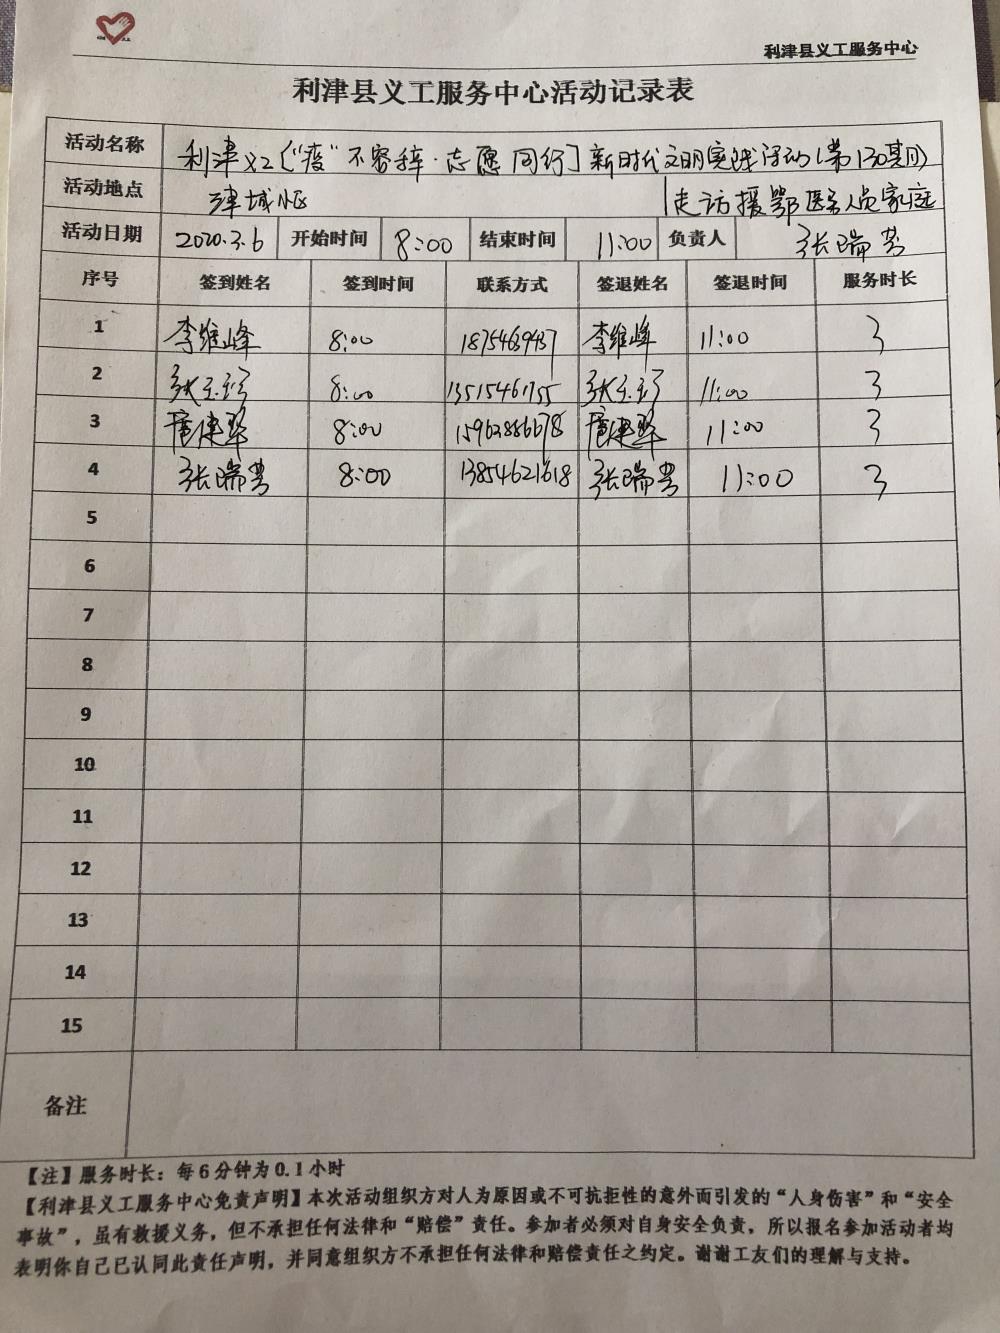 利津县义工服务中心
利津县义工服务中心活动记录表
活动名称 利津义工〔“疫”不容辞·志愿同行〕新时代文明实践活动(第130期)
活动地点 津城小区 走访援鄂医务人员家庭
活动日期 2020.3.6 开始时间 8:00 结束时间 11:00 负责人 张瑞芳
序号 签到姓名 签到时间 联系方式 签退姓名 签退时间 服务时长
1 李维峰 8:00 李维峰 11:00 3
2 8:00 13515461755 11:00 3
3 8:00 11:00 3
4 张瑞芳 8:00 13854621618 张瑞芳 11:00 3
5
6
7
8
9
10
11
12
13
14
15
备注
【注】服务时长：每6分钟为0.1小时
【利津县义工服务中心免责声明】本次活动组织方对人为原因或不可抗拒性的意外而引发的“人身伤害”和“安全
事故”，虽有救援义务，但不承担任何法律和“赔偿”责任。参加者必须对自身安全负责，所以报名参加活动者均
表明你自己已认同此责任声明，并同意组织方不承担任何法律和赔偿责任之约定。谢谢工友们的理解与支持。